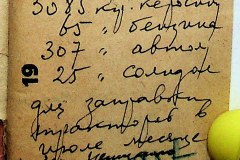 3085 кгр. керосин
65 " бензина
307 " автол
25 " солидол
19
для заправки
тракторов в
июле месяце